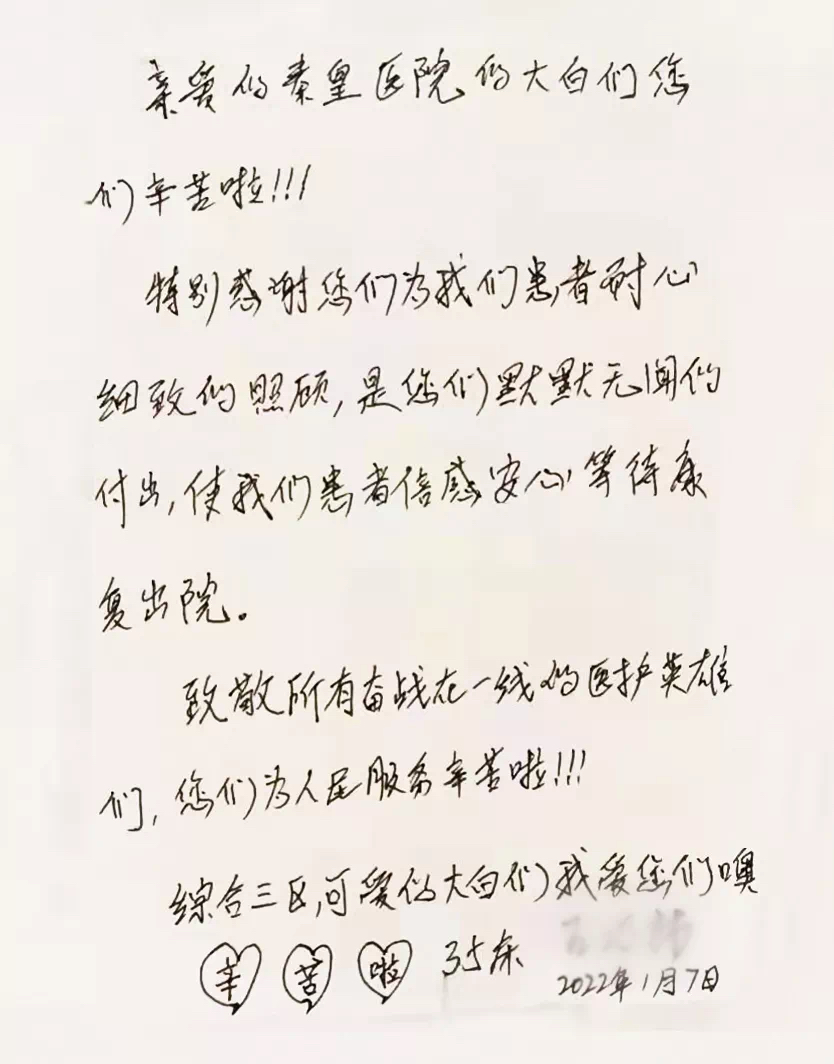 亲爱的秦皇医院的大白们您
们辛苦啦!!!
特别感谢您们为我们患者耐心
细致的照顾,是您们默默无闻的
付出,使我们患者倍感安心等待康
复出院。
致敬所有奋战在一线的医护英雄
们,您们为人民服务辛苦啦!!!
综合三区,可爱的大白们我爱您们噢
辛 苦 啦 35床
2022年1月7日